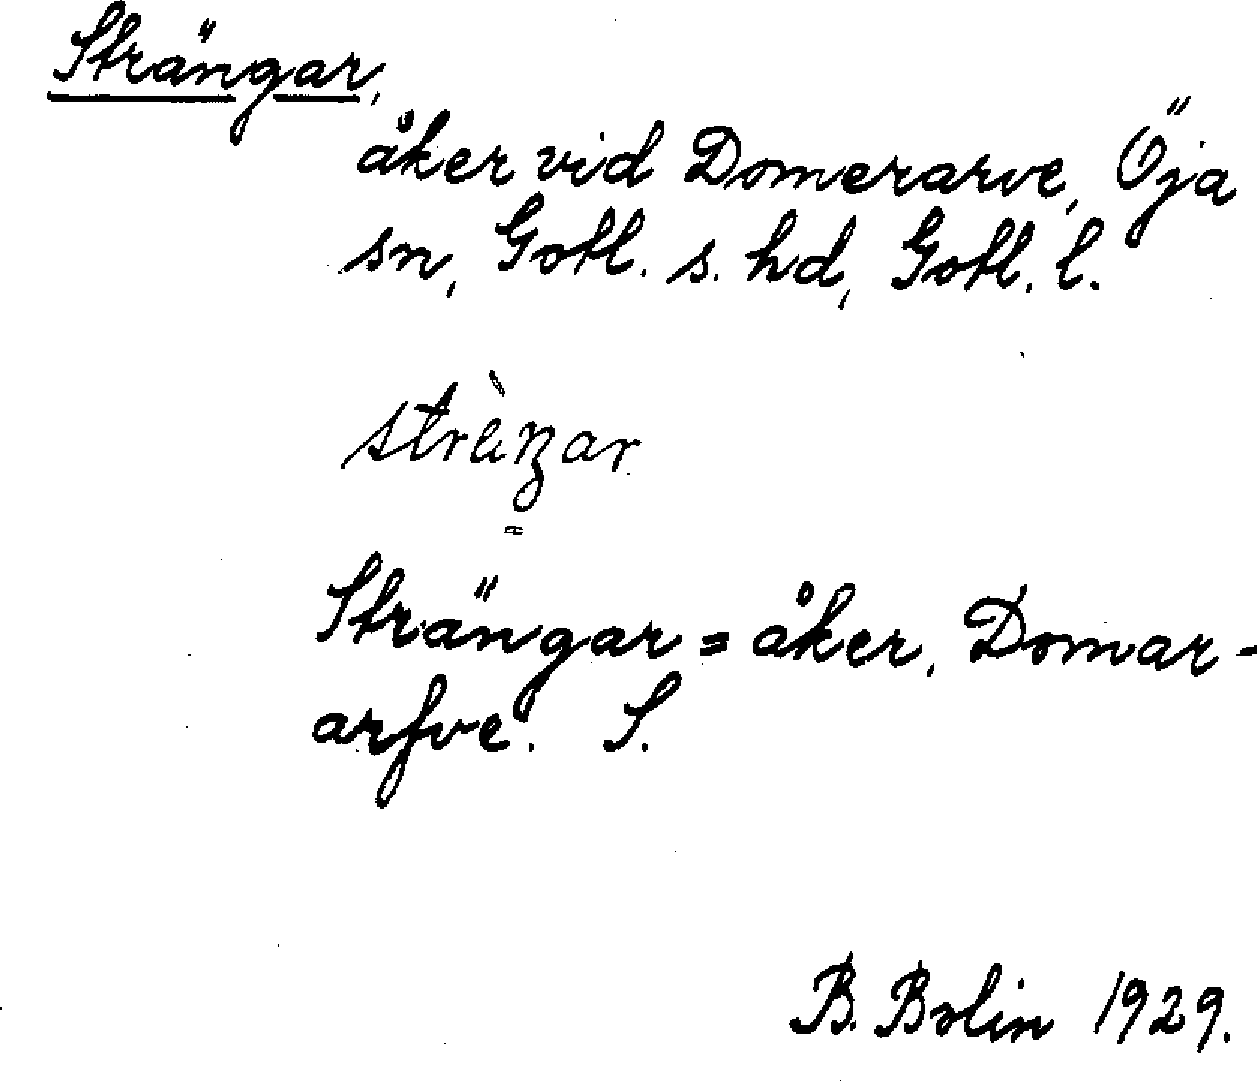 Strängar,
åker vid Domerarve, Öja
sn, Gotl. s. hd, Gotl. l.
Strängar = åker, Domar-
arfve. S.
B. Bolin 1929.